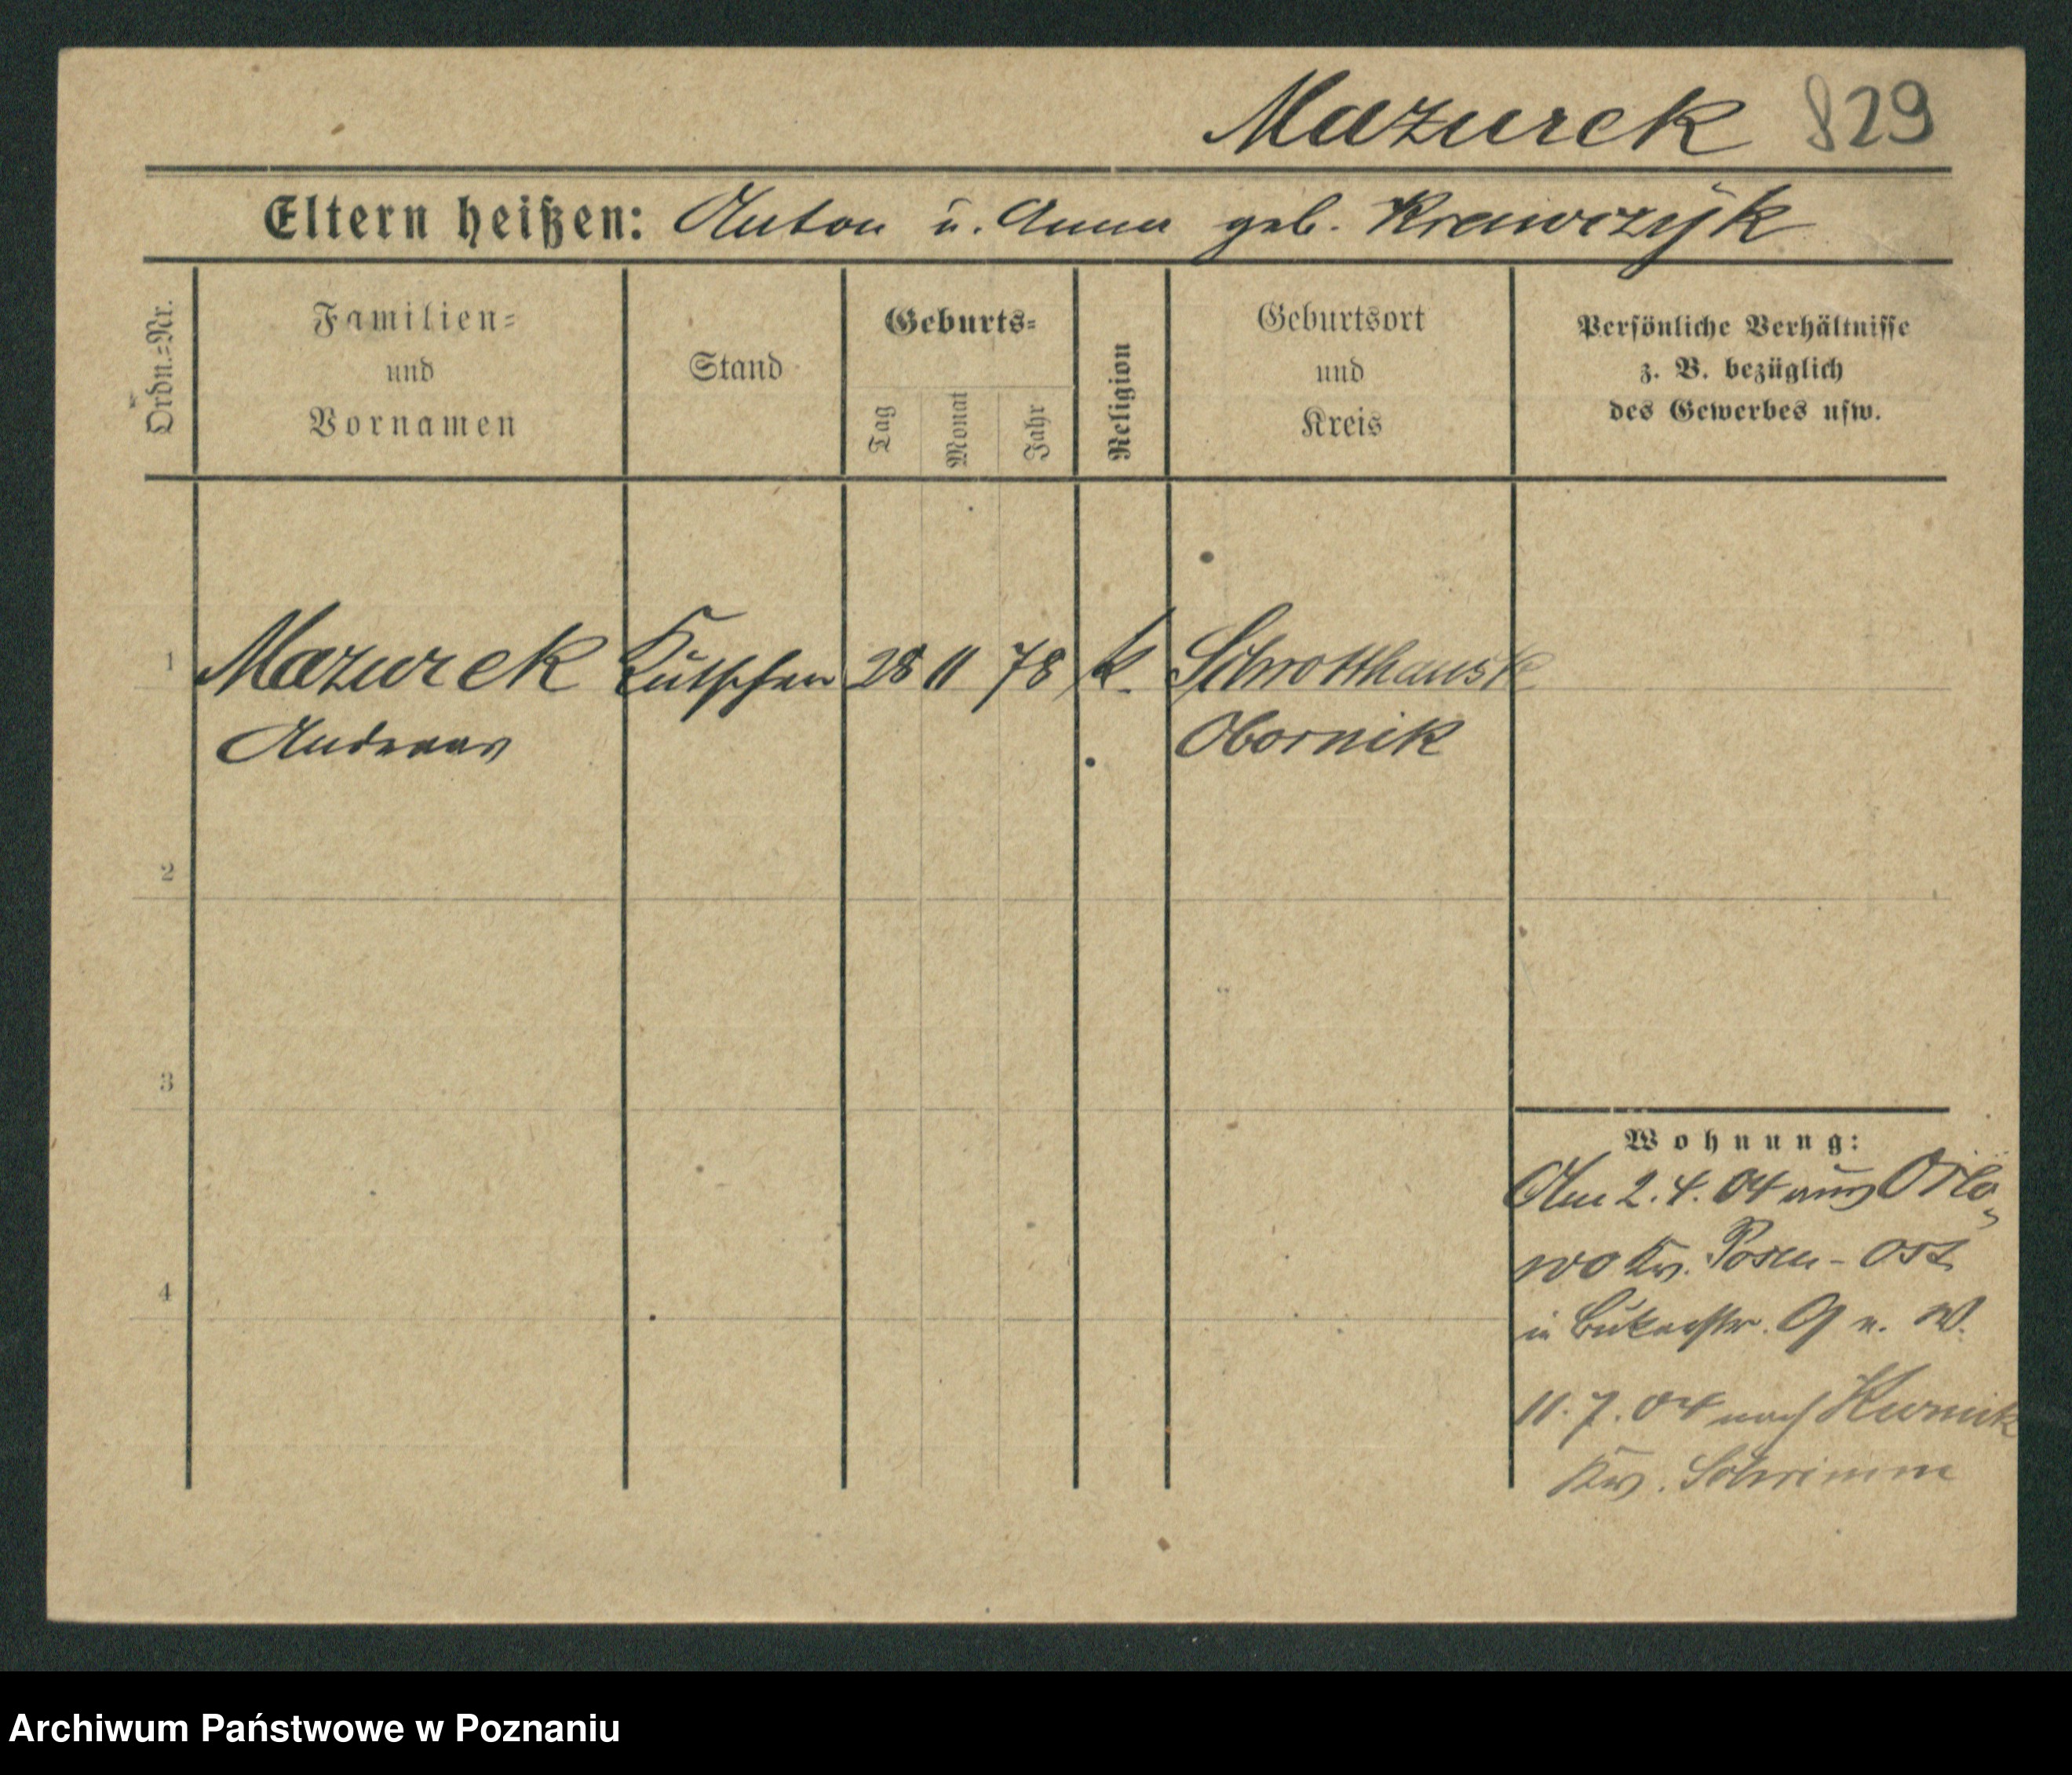 Mazurek 829
Eltern heißen: Anton u. Anna geb. Krawczyk
Ordn.=Nr.
Familien=
und
Vornamen
Stand
Geburts=
Tag
Monat
Jahr
Religion
Geburtsort
und
Kreis
Persönliche Verhältnisse
z. B. bezüglich
des Gewerbes usw.
1 Mazurek Kutscher 28 11 78 k. Schrotthaus K
Andreas Obornik
2
3
4
Wohnung:
Am 2.4.04 aus Orlo-
wo Kr. Posen-Ost
in Bukerstr. 9
11.7.04 nach Kurnik
Kr. Schrimm
Archiwum Państwowe w Poznaniu